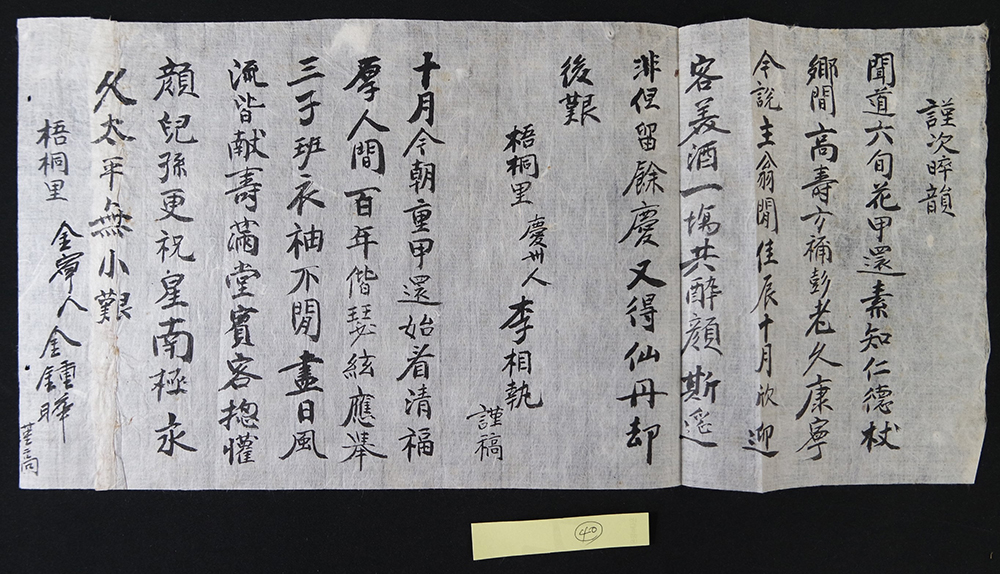 謹次晬韻
聞道六旬花甲還素知仁德杖
鄉間高壽方補彭老久康寧
今說主翁閒佳辰十月欣迎
客美酒一塲共醉顔斯筵
非但留餘慶又得仙丹却
後艱
梧桐里 慶州人 李相執 謹稿
十月今朝重甲還始看清福
厚人間百年偕瑟絃應舉
三子班衣袖不閒盡日風
流皆献壽滿堂賓客揔懽
顔兒孫更祝星南極永
久太平無小艱
梧桐里 金寧人 金鍾曄 謹稿
40